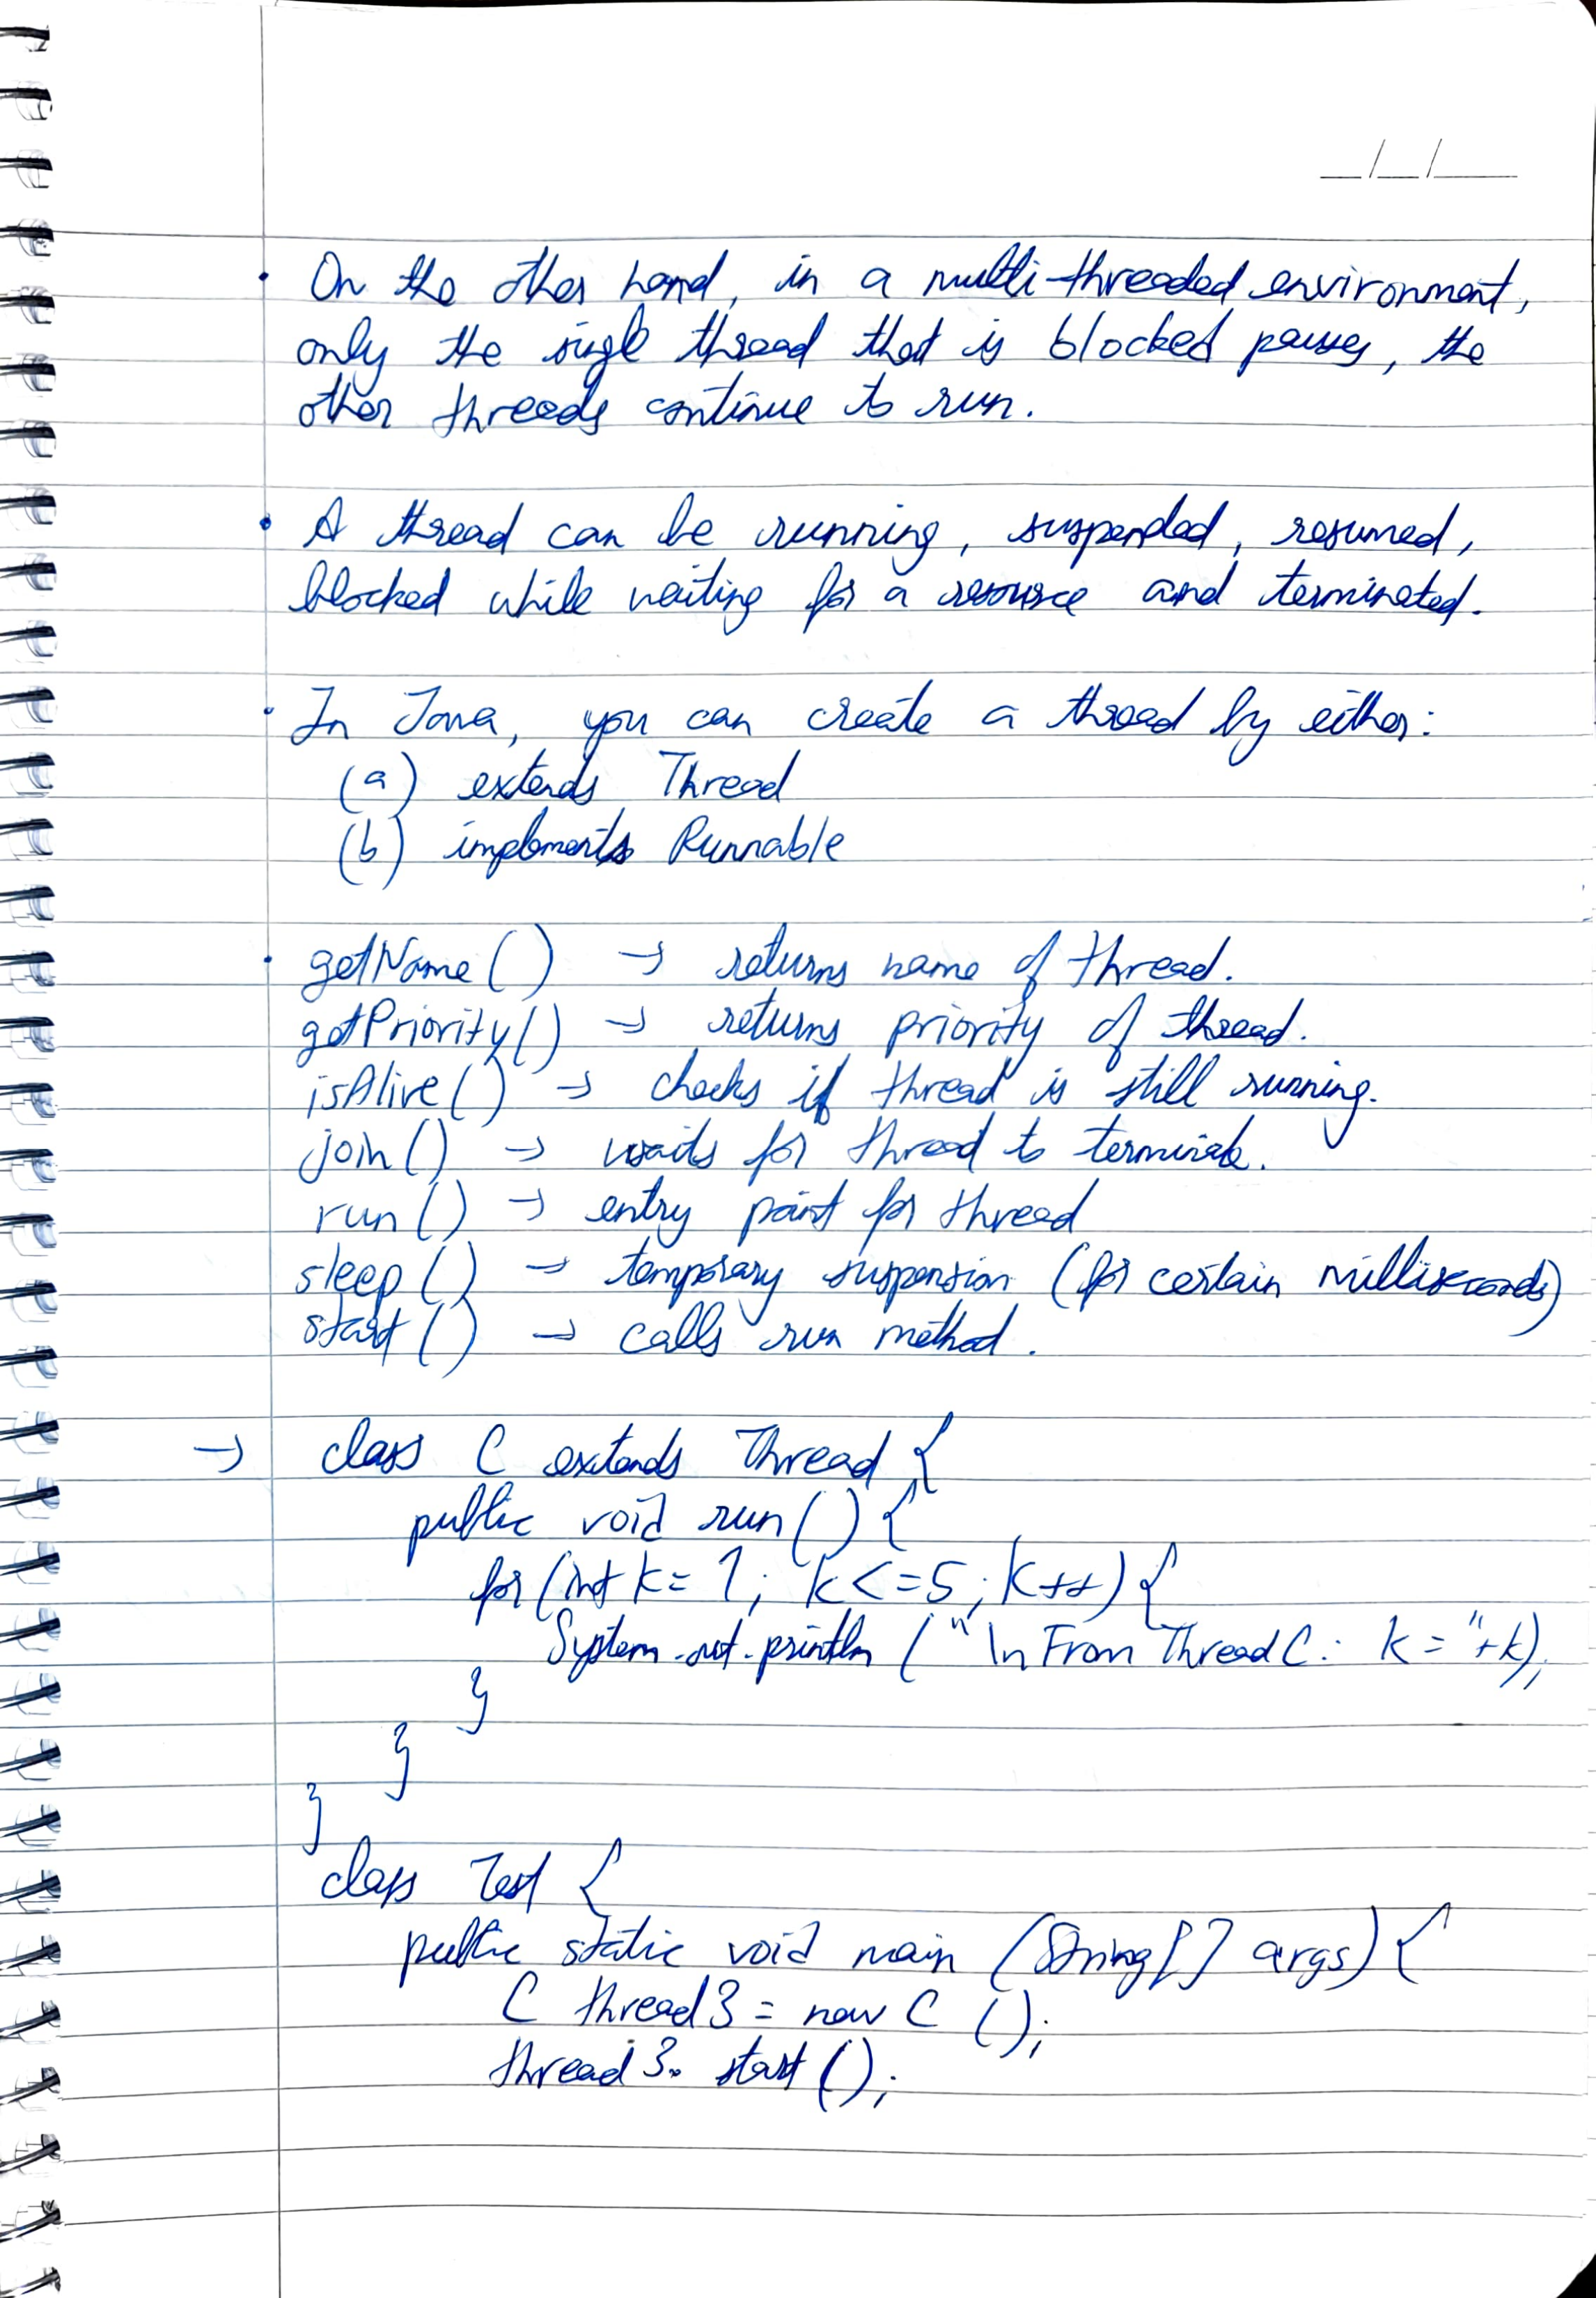 __/__/____
• On the other hand, in a multi-threaded environment,
only the single thread that is blocked pauses, the
other threads continue to run.
• A thread can be running, suspended, resumed,
blocked while waiting for a resource and terminated.
• In Java, you can create a thread by either:
(a) extends Thread
(b) implements Runnable
• getName() → returns name of thread.
getPriority() → returns priority of thread.
isAlive() → checks if thread is still running.
join() → waits for thread to terminate.
run() → entry point for thread
sleep() → temporary suspension (for certain milliseconds)
start() → calls run method.
→ class C extends Thread {
public void run() {
for (int k = 1; k <= 5; k++) {
System.out.println ("\n From Thread C: k = "+k);
}
}
}
class Test {
public static void main (String[] args) {
C thread3 = new C ();
thread3. start ();